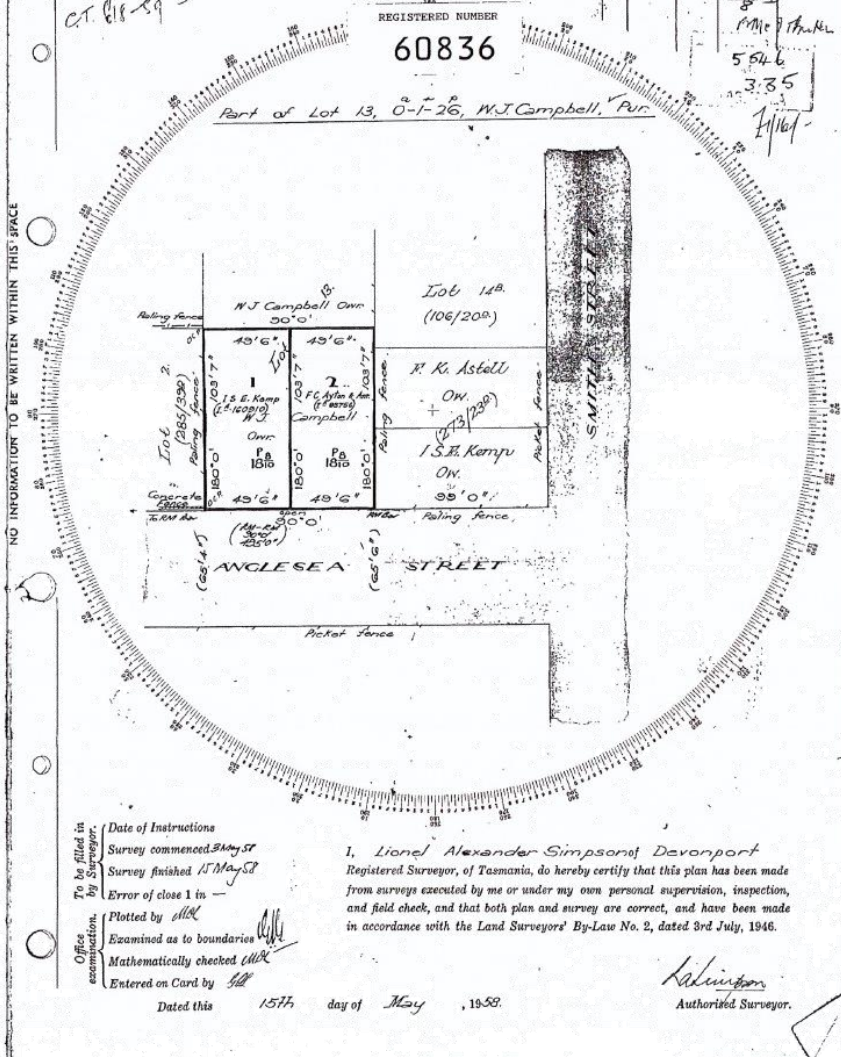 C.T. 618-59
REGISTERED NUMBER
60836
8
5546
3.35
Part of Lot 13, 0-1-26, W.J. Campbell, Pur.
a r p
NO INFORMATION TO BE WRITTEN WITHIN THIS SPACE
SMITH STREET
Lot 14B.
(106/20D.)
W J Campbell Owr.
13.
90°0'
Paling fence
49'6"
49'6"
Lot
Lot 2.
(285/39D)
Paling fence
103'7"
103'7"
103'7"
1
I S E. Kemp
W J.
Owr.
P8
1810
2
F.C. Ayton & Anr.
Campbell
P8
1810
180°0'
180°0'
180°0'
Paling fence
F. K. Astell
Ow.
(273/23D)
I S.E. Kemp
Ow.
99'0"
Picket fence
Concrete
fence
49'6"
49'6"
To RM Bar
open
90°0'
Paling fence.
(RM-RM
90°0'
495'0")
(65'4")
ANGLESEA
(65'6")
STREET
Picket fence
To be filled in
by Surveyor.
Date of Instructions
Survey commenced 3 May 58
Survey finished 15 May 58
Error of close 1 in —
Office
examination.
Plotted by
Examined as to boundaries
Mathematically checked
Entered on Card by
I, Lionel Alexander Simpson of Devonport
Registered Surveyor, of Tasmania, do hereby certify that this plan has been made
from surveys executed by me or under my own personal supervision, inspection,
and field check, and that both plan and survey are correct, and have been made
in accordance with the Land Surveyors' By-Law No. 2, dated 3rd July, 1946.
LaSimpson
Dated this 15th day of May , 1958.
Authorised Surveyor.